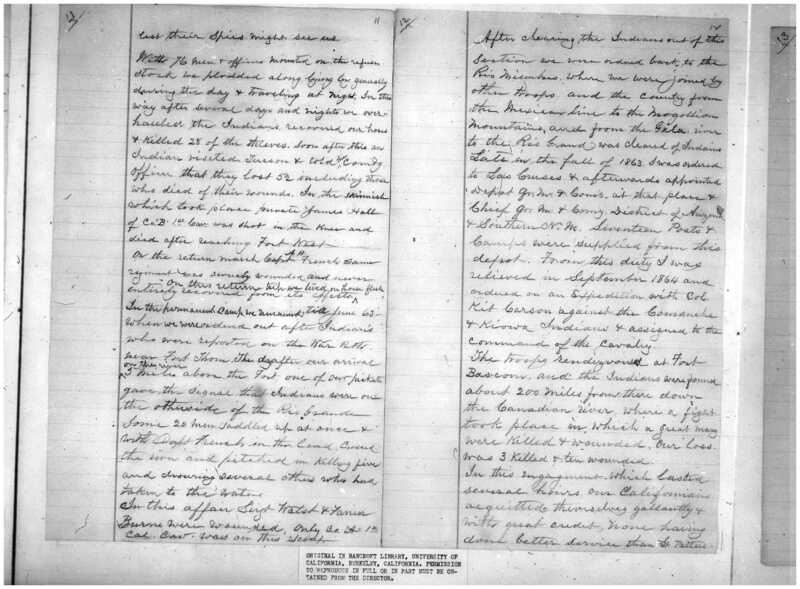 11
lest their Spies might see us
With 76 men & officers mounted on the refuse
Stock we plodded along lying by generally
during the day & traveling at night. In this
way after several days and nights we over-
hauled the Indians, recovered our horses
& killed 28 of the thieves. Soon after this an
Indian visited Tucson & told the Com'd'g
officer that they lost 52 including those
who died of their wounds. In the skirmish
which took place private James Hall
of Co "B" 1st Cav. was shot in the knee and
died after reaching Fort West
On the return march Capt French same
regiment was severely wounded and never
On this return trip we lived on horse flesh
entirely recovered from its effects
In the permanent Camp we remained till June 63
when we were ordered out after Indians
who were reported on the War Path
near Fort Thorn. The day after our arrival
on the river
3 miles above the Fort one of our pickets
gave the signal that Indians were on
the otherside of the Rio Grande
Some 20 men saddled up at once &
with Capt French in the lead, crossed
the river and pitched in killing five
and drowning several others who had
taken to the water
In this affair Sergt Walsh & Farrier
Burns were wounded, Only Co A 1st
Cal. Cav. was on this Scout
12
After clearing the Indians out of this
Section we were ordered back to the
Rio Miembres, where we were joined by
other troops and the country from
the Mexican line to the Mogollion
Mountains, and from the Gila river
to the Rio Grand was cleared of Indians
Late in the fall of 1863 I was ordered
to Las Cruses & afterwards appointed
Depot Qr. M. & Com's. at that place &
Chief Qr. M & Com'y District of Arizona
& Southern N. M. Seventeen Posts &
Camps were supplied from this
depot. From this duty I was
relieved in September 1864 and
ordered on an Expedition with Col
Kit Carson against the Comanche
& Kiowa Indians & assigned to the
command of the Cavalry.
The troops rendezvoused at Fort
Bascom, and the Indians were found
about 200 miles from there down
the Canadian river, where a fight
took place in which a great many
were killed & wounded. Our loss
was 3 killed & ten wounded.
In this engagement which lasted
several hours our Californians
acquitted themselves gallantly &
with great credit, none having
done better service than
13
ORIGINAL IN BANCROFT LIBRARY, UNIVERSITY OF
CALIFORNIA, BERKELEY, CALIFORNIA. PERMISSION
TO REPRODUCE IN FULL OR IN PART MUST BE OB-
TAINED FROM THE DIRECTOR.